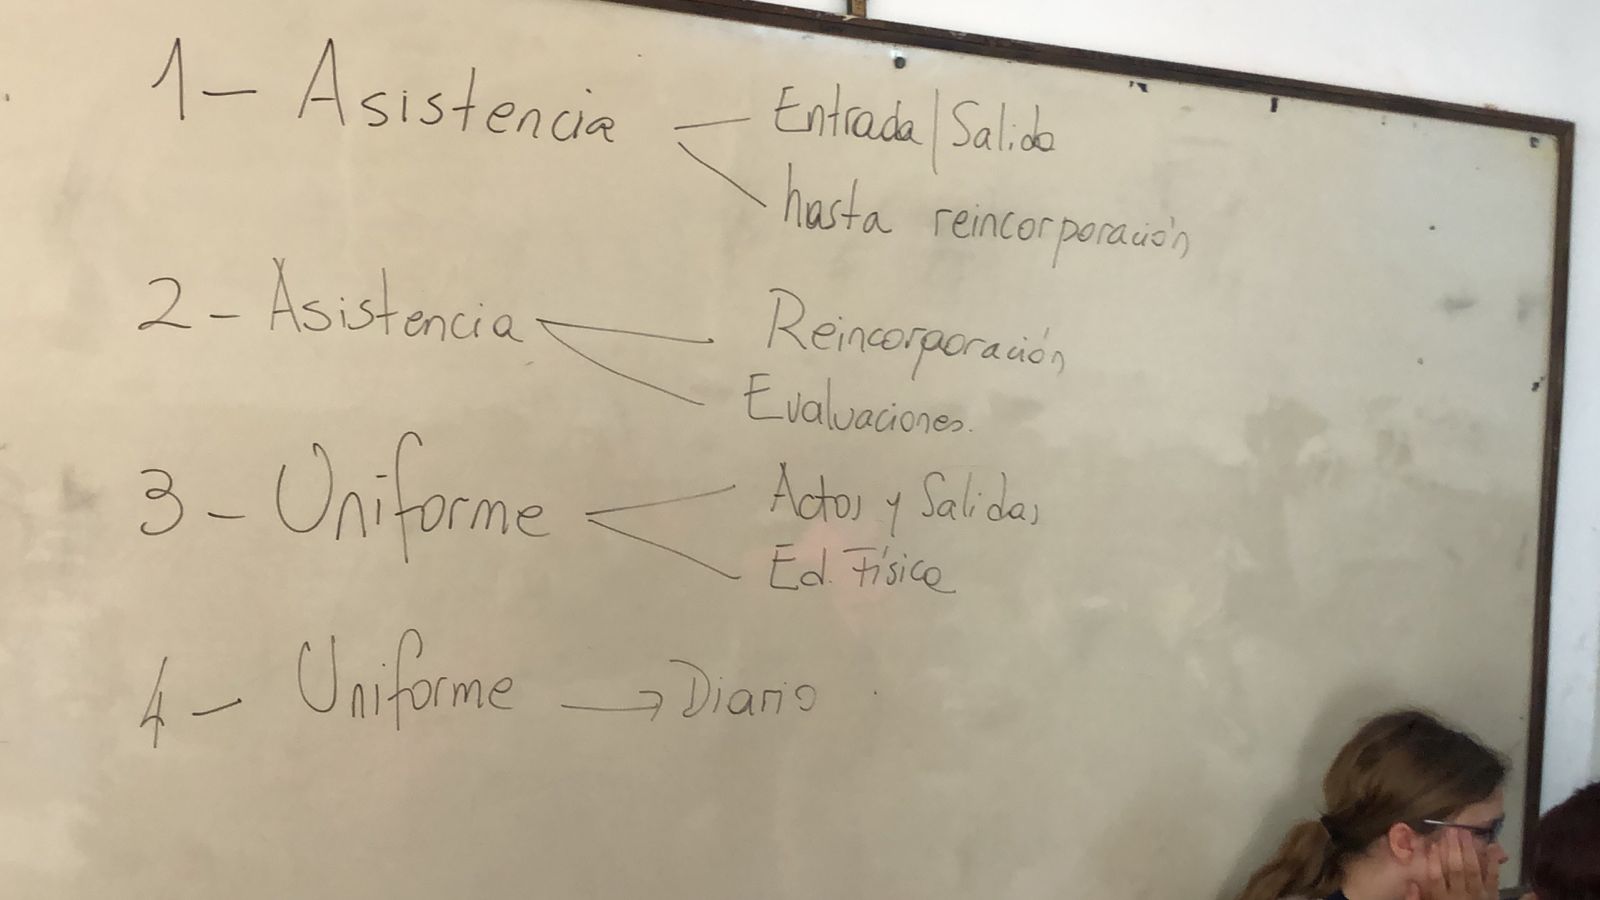 1- Asistencia
Entrada/Salida
hasta reincorporación
2- Asistencia
Reincorporación
Evaluaciones.
3- Uniforme
Actos y Salidas
Ed. Física
4- Uniforme → Diario